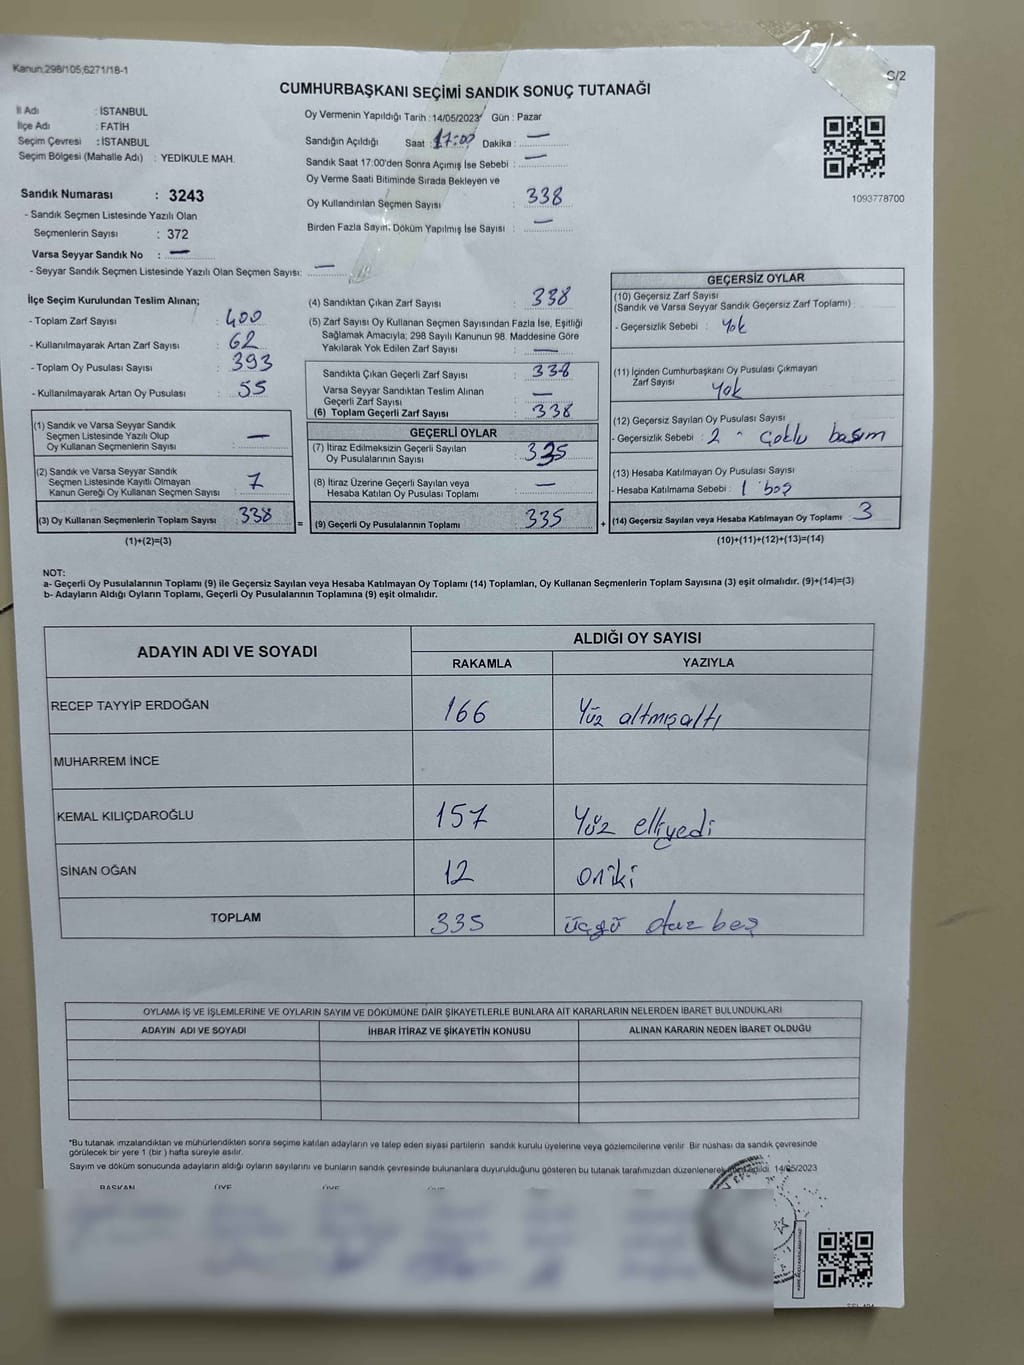 Kanun;298/105;6271/18-1
S/2
CUMHURBAŞKANI SEÇİMİ SANDIK SONUÇ TUTANAĞI
İl Adı : İSTANBUL
İlçe Adı : FATİH
Seçim Çevresi : İSTANBUL
Seçim Bölgesi (Mahalle Adı) : YEDİKULE MAH.
Sandık Numarası : 3243
- Sandık Seçmen Listesinde Yazılı Olan
Seçmenlerin Sayısı : 372
Varsa Seyyar Sandık No : —
- Seyyar Sandık Seçmen Listesinde Yazılı Olan Seçmen Sayısı: —
Oy Vermenin Yapıldığı Tarih : 14/05/2023 Gün : Pazar
Sandığın Açıldığı Saat : 17:00 Dakika : —
Sandık Saat 17:00'den Sonra Açımış İse Sebebi : —
Oy Verme Saati Bitiminde Sırada Bekleyen ve
Oy Kullandırılan Seçmen Sayısı : 338
Birden Fazla Sayım, Döküm Yapılmış İse Sayısı : —
1093778700
İlçe Seçim Kurulundan Teslim Alınan;
- Toplam Zarf Sayısı : 400
- Kullanılmayarak Artan Zarf Sayısı : 62
- Toplam Oy Pusulası Sayısı : 393
- Kullanılmayarak Artan Oy Pusulası : 55
(1) Sandık ve Varsa Seyyar Sandık
Seçmen Listesinde Yazılı Olup
Oy Kullanan Seçmenlerin Sayısı : —
(2) Sandık ve Varsa Seyyar Sandık
Seçmen Listesinde Kayıtlı Olmayan
Kanun Gereği Oy Kullanan Seçmen Sayısı : 7
(3) Oy Kullanan Seçmenlerin Toplam Sayısı : 338
(1)+(2)=(3)
=
(4) Sandıktan Çıkan Zarf Sayısı : 338
(5) Zarf Sayısı Oy Kullanan Seçmen Sayısından Fazla İse, Eşitliği
Sağlamak Amacıyla; 298 Sayılı Kanunun 98. Maddesine Göre
Yakılarak Yok Edilen Zarf Sayısı : —
Sandıkta Çıkan Geçerli Zarf Sayısı : 338
Varsa Seyyar Sandıktan Teslim Alınan
Geçerli Zarf Sayısı : —
(6) Toplam Geçerli Zarf Sayısı : 338
GEÇERLİ OYLAR
(7) İtiraz Edilmeksizin Geçerli Sayılan
Oy Pusulalarının Sayısı : 335
(8) İtiraz Üzerine Geçerli Sayılan veya
Hesaba Katılan Oy Pusulası Toplamı : —
(9) Geçerli Oy Pusulalarının Toplamı : 335
+
GEÇERSİZ OYLAR
(10) Geçersiz Zarf Sayısı
(Sandık ve Varsa Seyyar Sandık Geçersiz Zarf Toplamı)
- Geçersizlik Sebebi : Yok
(11) İçinden Cumhurbaşkanı Oy Pusulası Çıkmayan
Zarf Sayısı Yok
(12) Geçersiz Sayılan Oy Pusulası Sayısı
- Geçersizlik Sebebi : 2 - Çoklu basım
(13) Hesaba Katılmayan Oy Pusulası Sayısı
- Hesaba Katılmama Sebebi : 1 boş
(14) Geçersiz Sayılan veya Hesaba Katılmayan Oy Toplamı : 3
(10)+(11)+(12)+(13)=(14)
NOT:
a- Geçerli Oy Pusulalarının Toplamı (9) ile Geçersiz Sayılan veya Hesaba Katılmayan Oy Toplamı (14) Toplamları, Oy Kullanan Seçmenlerin Toplam Sayısına (3) eşit olmalıdır. (9)+(14)=(3)
b- Adayların Aldığı Oyların Toplamı, Geçerli Oy Pusulalarının Toplamına (9) eşit olmalıdır.
ADAYIN ADI VE SOYADI
ALDIĞI OY SAYISI
RAKAMLA YAZIYLA
RECEP TAYYİP ERDOĞAN 166 Yüz altmışaltı
MUHARREM İNCE
KEMAL KILIÇDAROĞLU 157 Yüz elliyedi
SİNAN OĞAN 12 oniki
TOPLAM 335 üçyü otuz beş
OYLAMA İŞ VE İŞLEMLERİNE VE OYLARIN SAYIM VE DÖKÜMÜNE DAİR ŞİKAYETLERLE BUNLARA AİT KARARLARIN NELERDEN İBARET BULUNDUKLARI
ADAYIN ADI VE SOYADI İHBAR İTİRAZ VE ŞİKAYETİN KONUSU ALINAN KARARIN NEDEN İBARET OLDUĞU
*Bu tutanak imzalandıktan ve mühürlendikten sonra seçime katılan adayların ve talep eden siyasi partilerin sandık kurulu üyelerine veya gözlemcilerine verilir. Bir nüshası da sandık çevresinde
görülecek bir yere 1 (bir ) hafta süreyle asılır.
Sayım ve döküm sonucunda adayların aldığı oyların sayılarını ve bunların sandık çevresinde bulunanlara duyurulduğunu gösteren bu tutanak tarafımızdan düzenlenerek 14/05/2023
BAŞKAN ÜYE ÜYE ÜYE